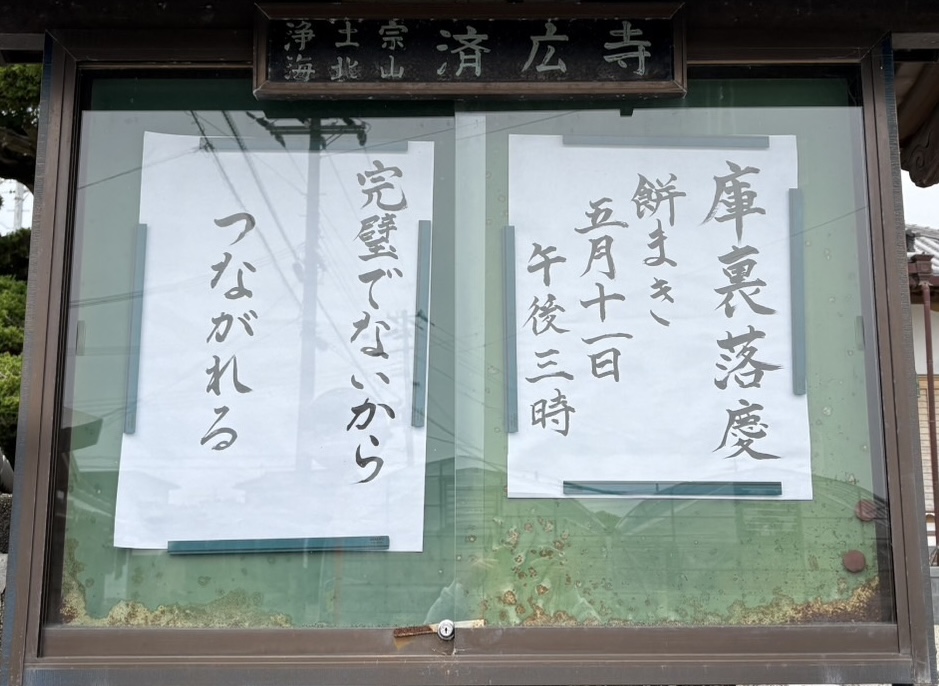 浄土宗
海北山
済広寺
庫裏落慶
餅まき
五月十一日
午後三時
完璧でないから
つながれる